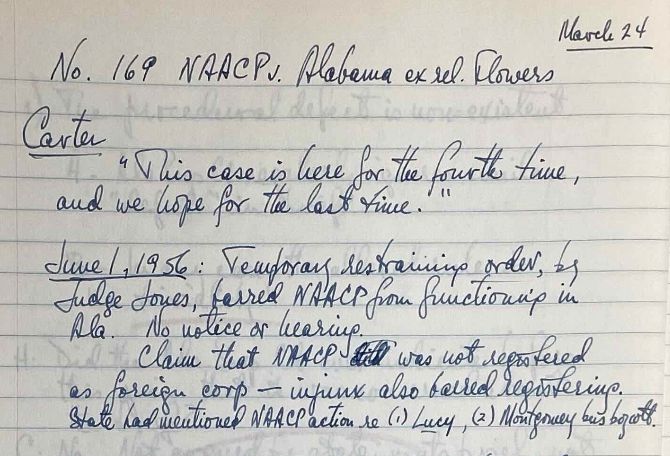 March 24
No. 169 NAACP v. Alabama ex rel. Flowers
Carter
"This case is here for the fourth time,
and we hope for the last time."
June 1, 1956: Temporary restraining order, by
Judge Jones, barred NAACP from functioning in
Ala. No notice or hearing.
Claim that NAACP was not registered
as foreign corp — injunx also barred registering.
State had mentioned NAACP action re (1) Lucy, (2) Montgomery bus boycott.